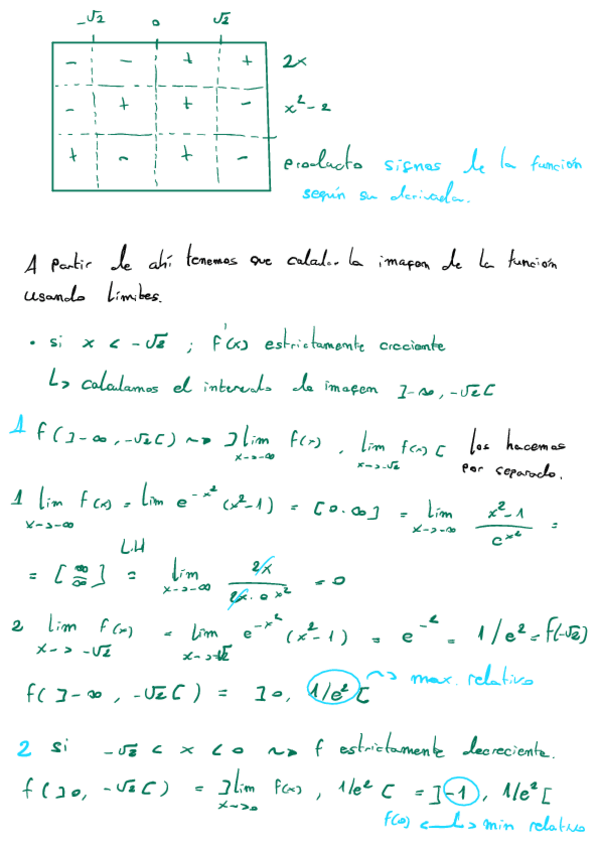 -√2 0 √2
- - + + 2x
- + + - x² - 2
+ - + - producto signos de la función
según su derivada.
A partir de ahí tenemos que calcular la imagen de la función
usando límites.
• si x < -√2 ; f'(x) estrictamente creciente
↳ calculamos el intervalo de imagen ]-∞, -√2[
1 f(]-∞, -√2[) ~> ]lim x->-∞ f(x), lim x->-√2 f(x)[ los hacemos
por separado.
1 lim x->-∞ f(x) = lim e^-x² (x²-1) = [0·∞] = lim x->-∞ (x²-1)/(e^x²) =
= [∞/∞] L.H = lim x->-∞ 2x/(2x·e^x²) = 0
2 lim x->-√2 f(x) = lim x->-√2 e^-x² (x²-1) = e^-2 = 1/e² = f(-√2)
f(]-∞, -√2[) = ]0, 1/e²[ ~> max. relativo
2 si -√2 < x < 0 ~> f estrictamente decreciente.
f(]0, -√2[) = ]lim x->0 f(x), 1/e²[ = ]-1, 1/e²[
f(0) <-> min relativo